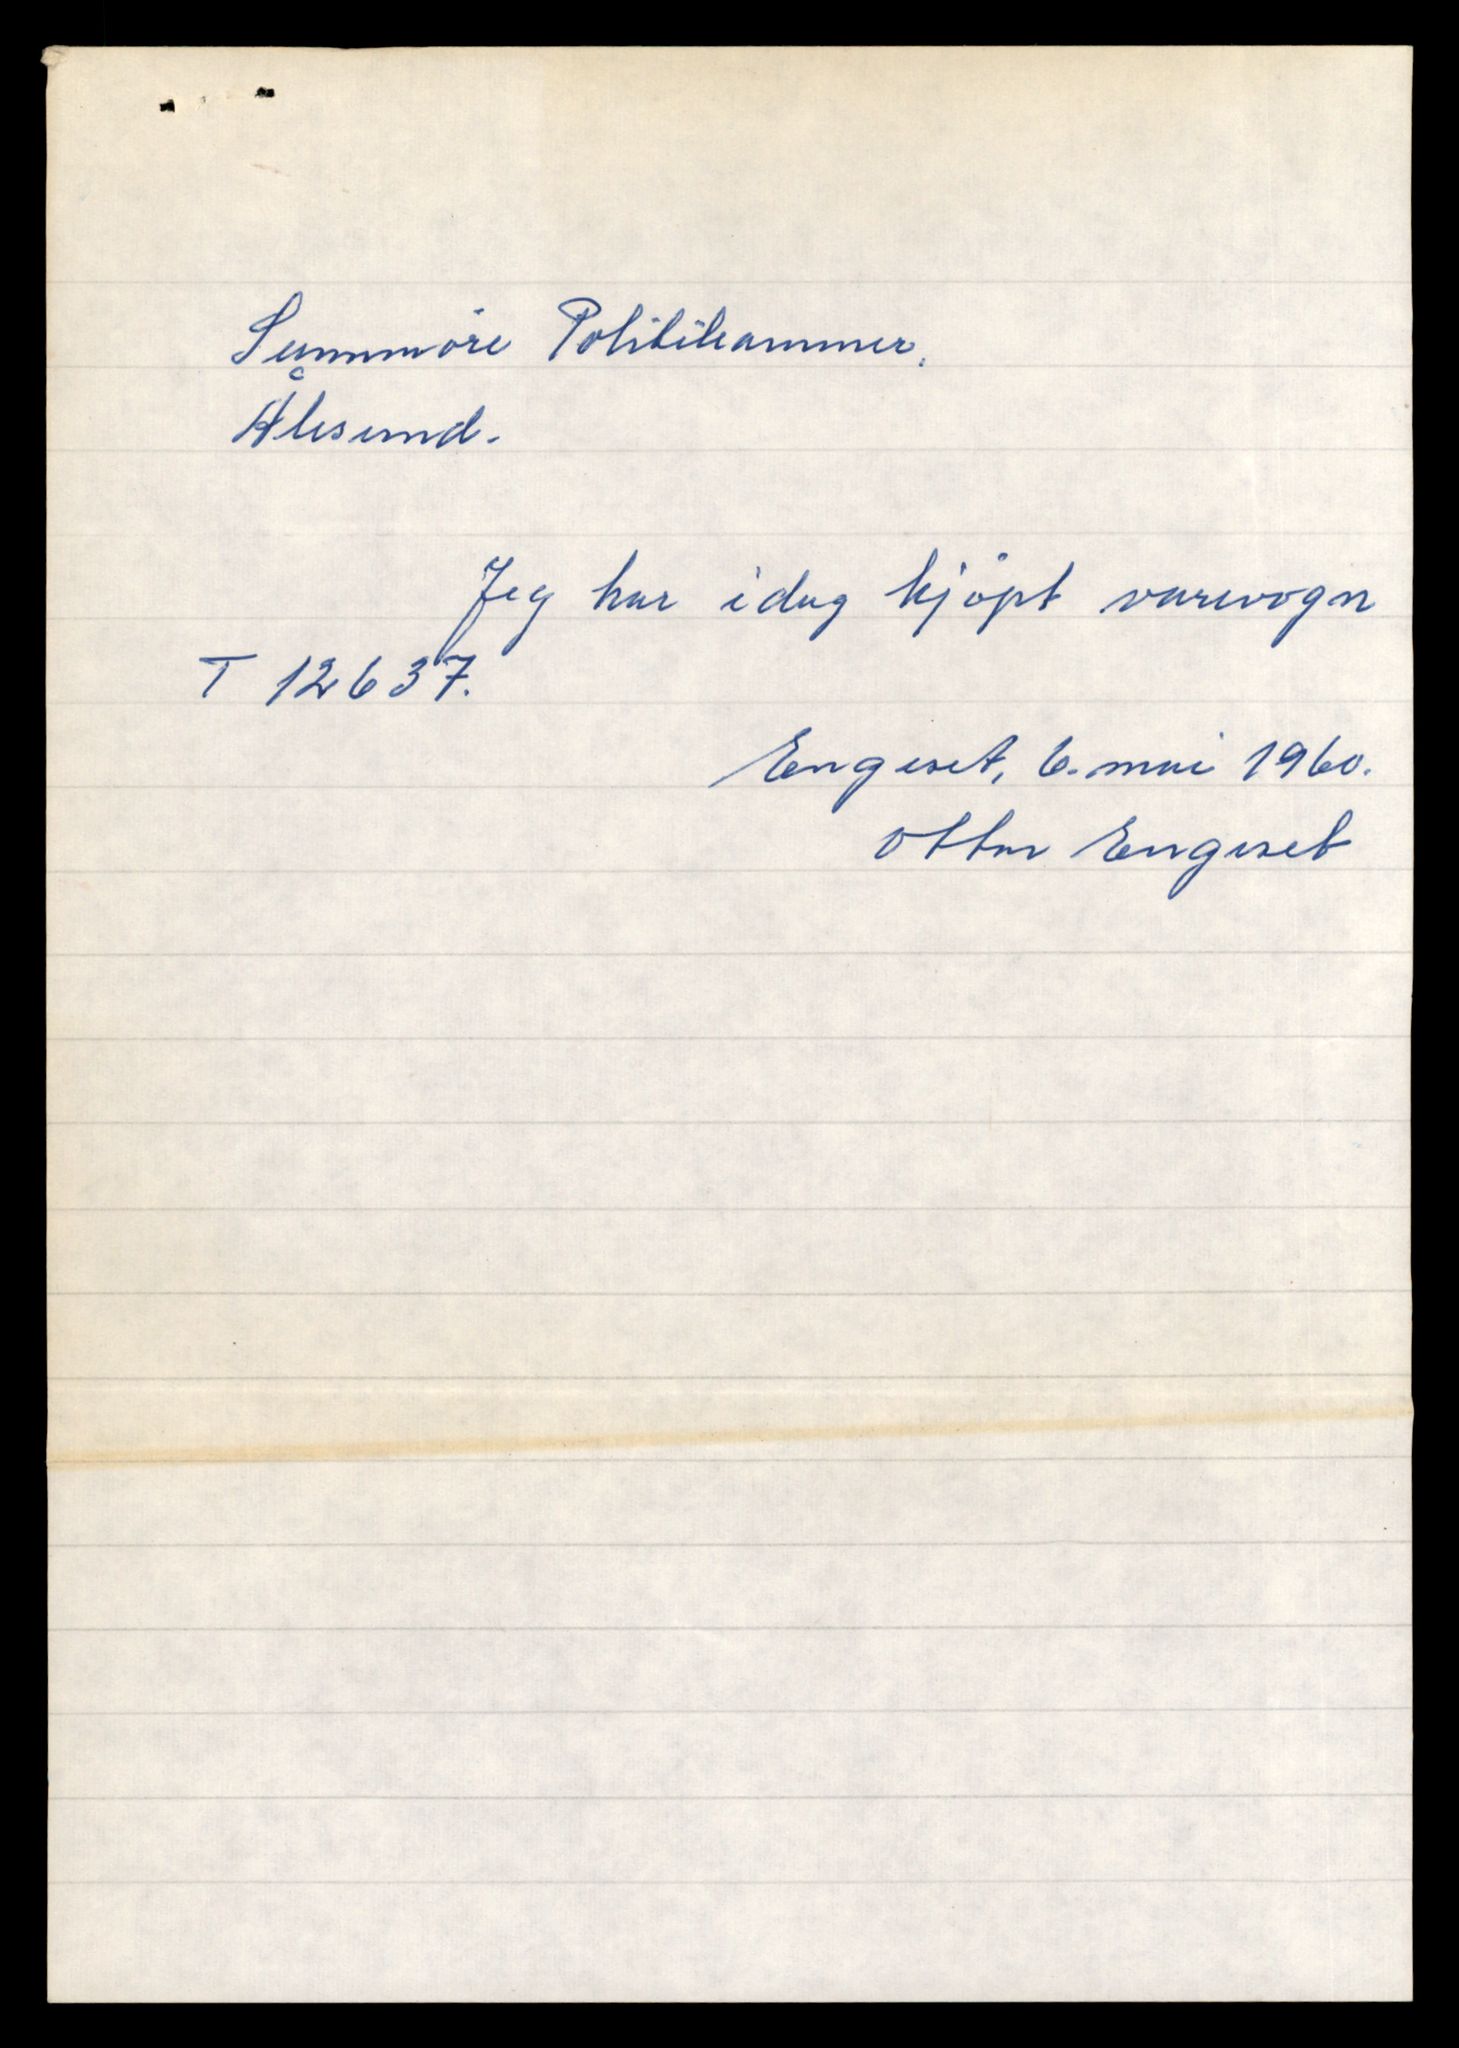 Sunnmöre Politikammer.
Ålesund.
Jeg har idag kjöpt varevogn
T 12637.
Engeset, 6. mai 1960.
Ottar Engeset